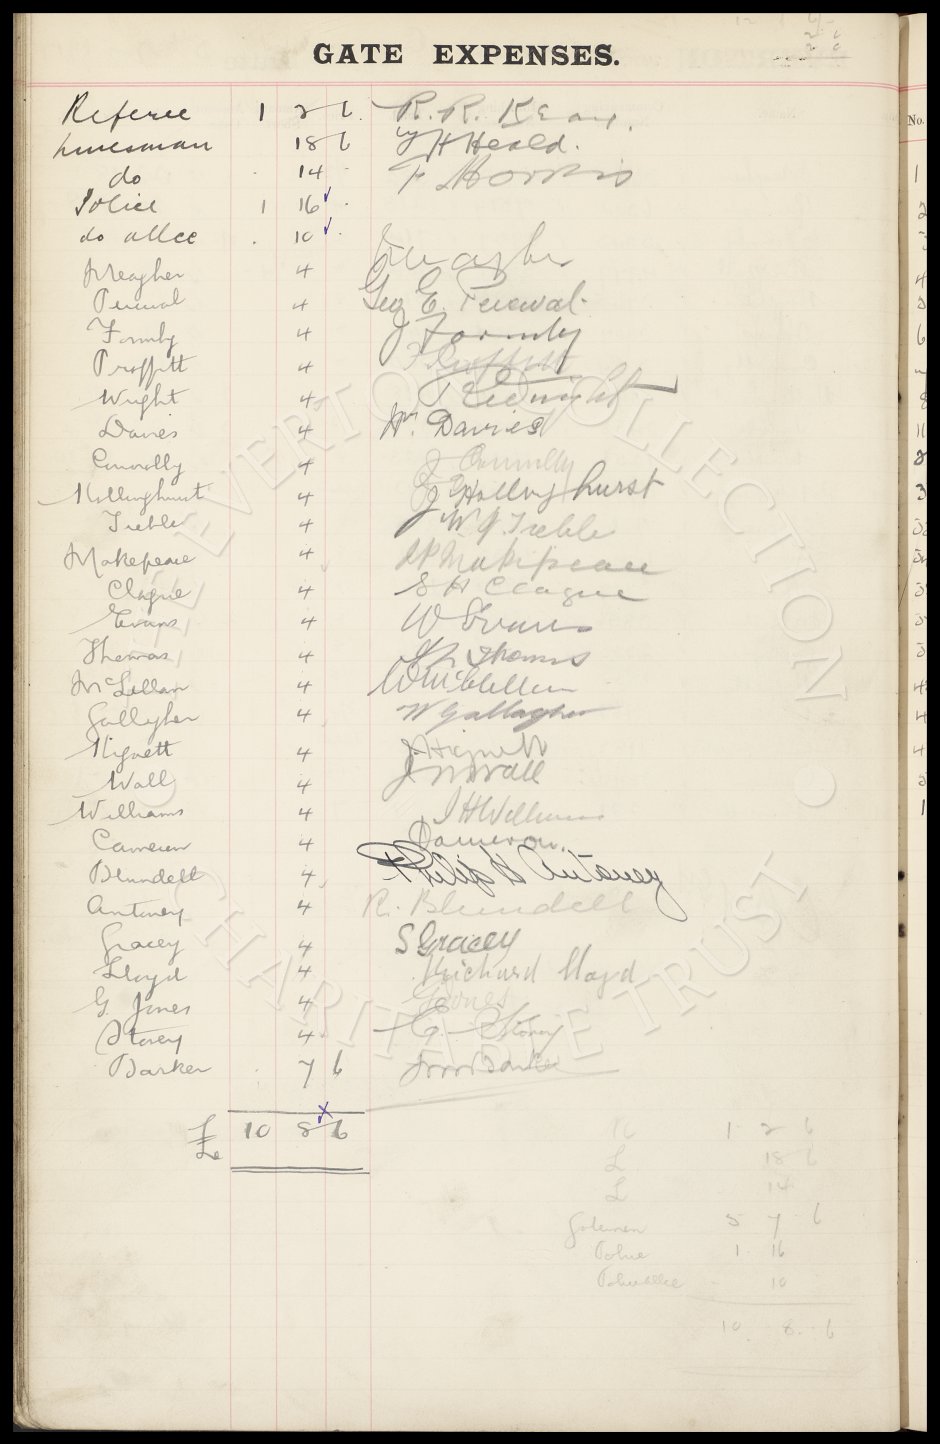 GATE EXPENSES.
Referee 1 2 6 R. R.
Linesman 18 6 H Heald.
do 14 - F Morris
Police 1 16 -
do allce 10 -
Meagher 4 Meagher
Percival 4 Geo E. Percival
Formby 4 J Formby
Proffitt 4 Proffitt
Wright 4 Wright
Davies 4 Wm Davies
Connolly 4 J Connolly
Hollinghurst 4 J Hollinghurst
Treble 4 W J. Treble
Makepeace 4 Makepeace
Clague 4 S H Clague
Evans 4 W Evans
Thomas 4 Thomas
McLellan 4 W McClellan
Gallagher 4 W Gallagher
Hignett 4 J. Hignett
Wall 4 J Wall
Williams 4 J H Williams
Cameron 4 Cameron.
Blundell 4 Philip H Antoney
Antoney 4 R. Blundell
Gracey 4 S Gracey
Lloyd 4 Richard Lloyd
G. Jones 4 G Jones
Storey 4 E. Storey
Barker 7 6 Barker
£ 10 8 6
R 1 2 6
L 18 6
L 14
Gatemen 5 7 6
Police 1 16
Police allce 10
10 8 6
No.
EVERTON COLLECTION CHARITABLE TRUST